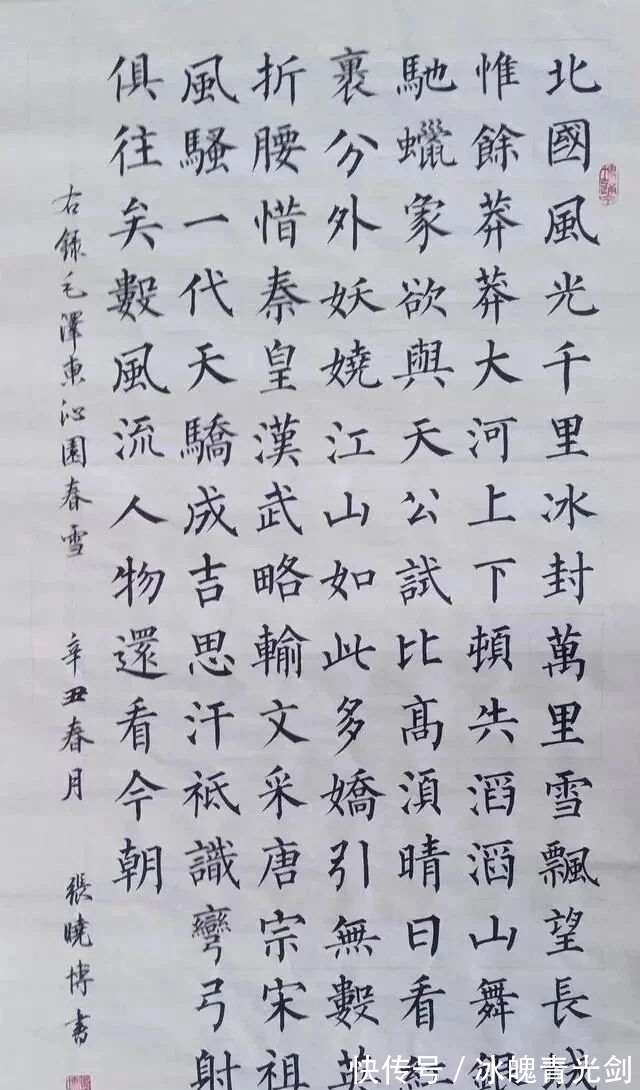 北國風光千里冰封萬里雪飄望長城
惟餘莽莽大河上下頓失滔滔山舞銀
馳蠟象欲與天公試比髙湏晴日看紅
裹分外妖嬈江山如此多嬌引無數英
折腰惜秦皇漢武略輸文采唐宗宋祖
風騷一代天驕成吉思汗祗識彎弓射
俱往矣數風流人物還看今朝
右錄毛澤東沁園春雪 辛丑春月 張曉博書
快传号／冰魄青光剑